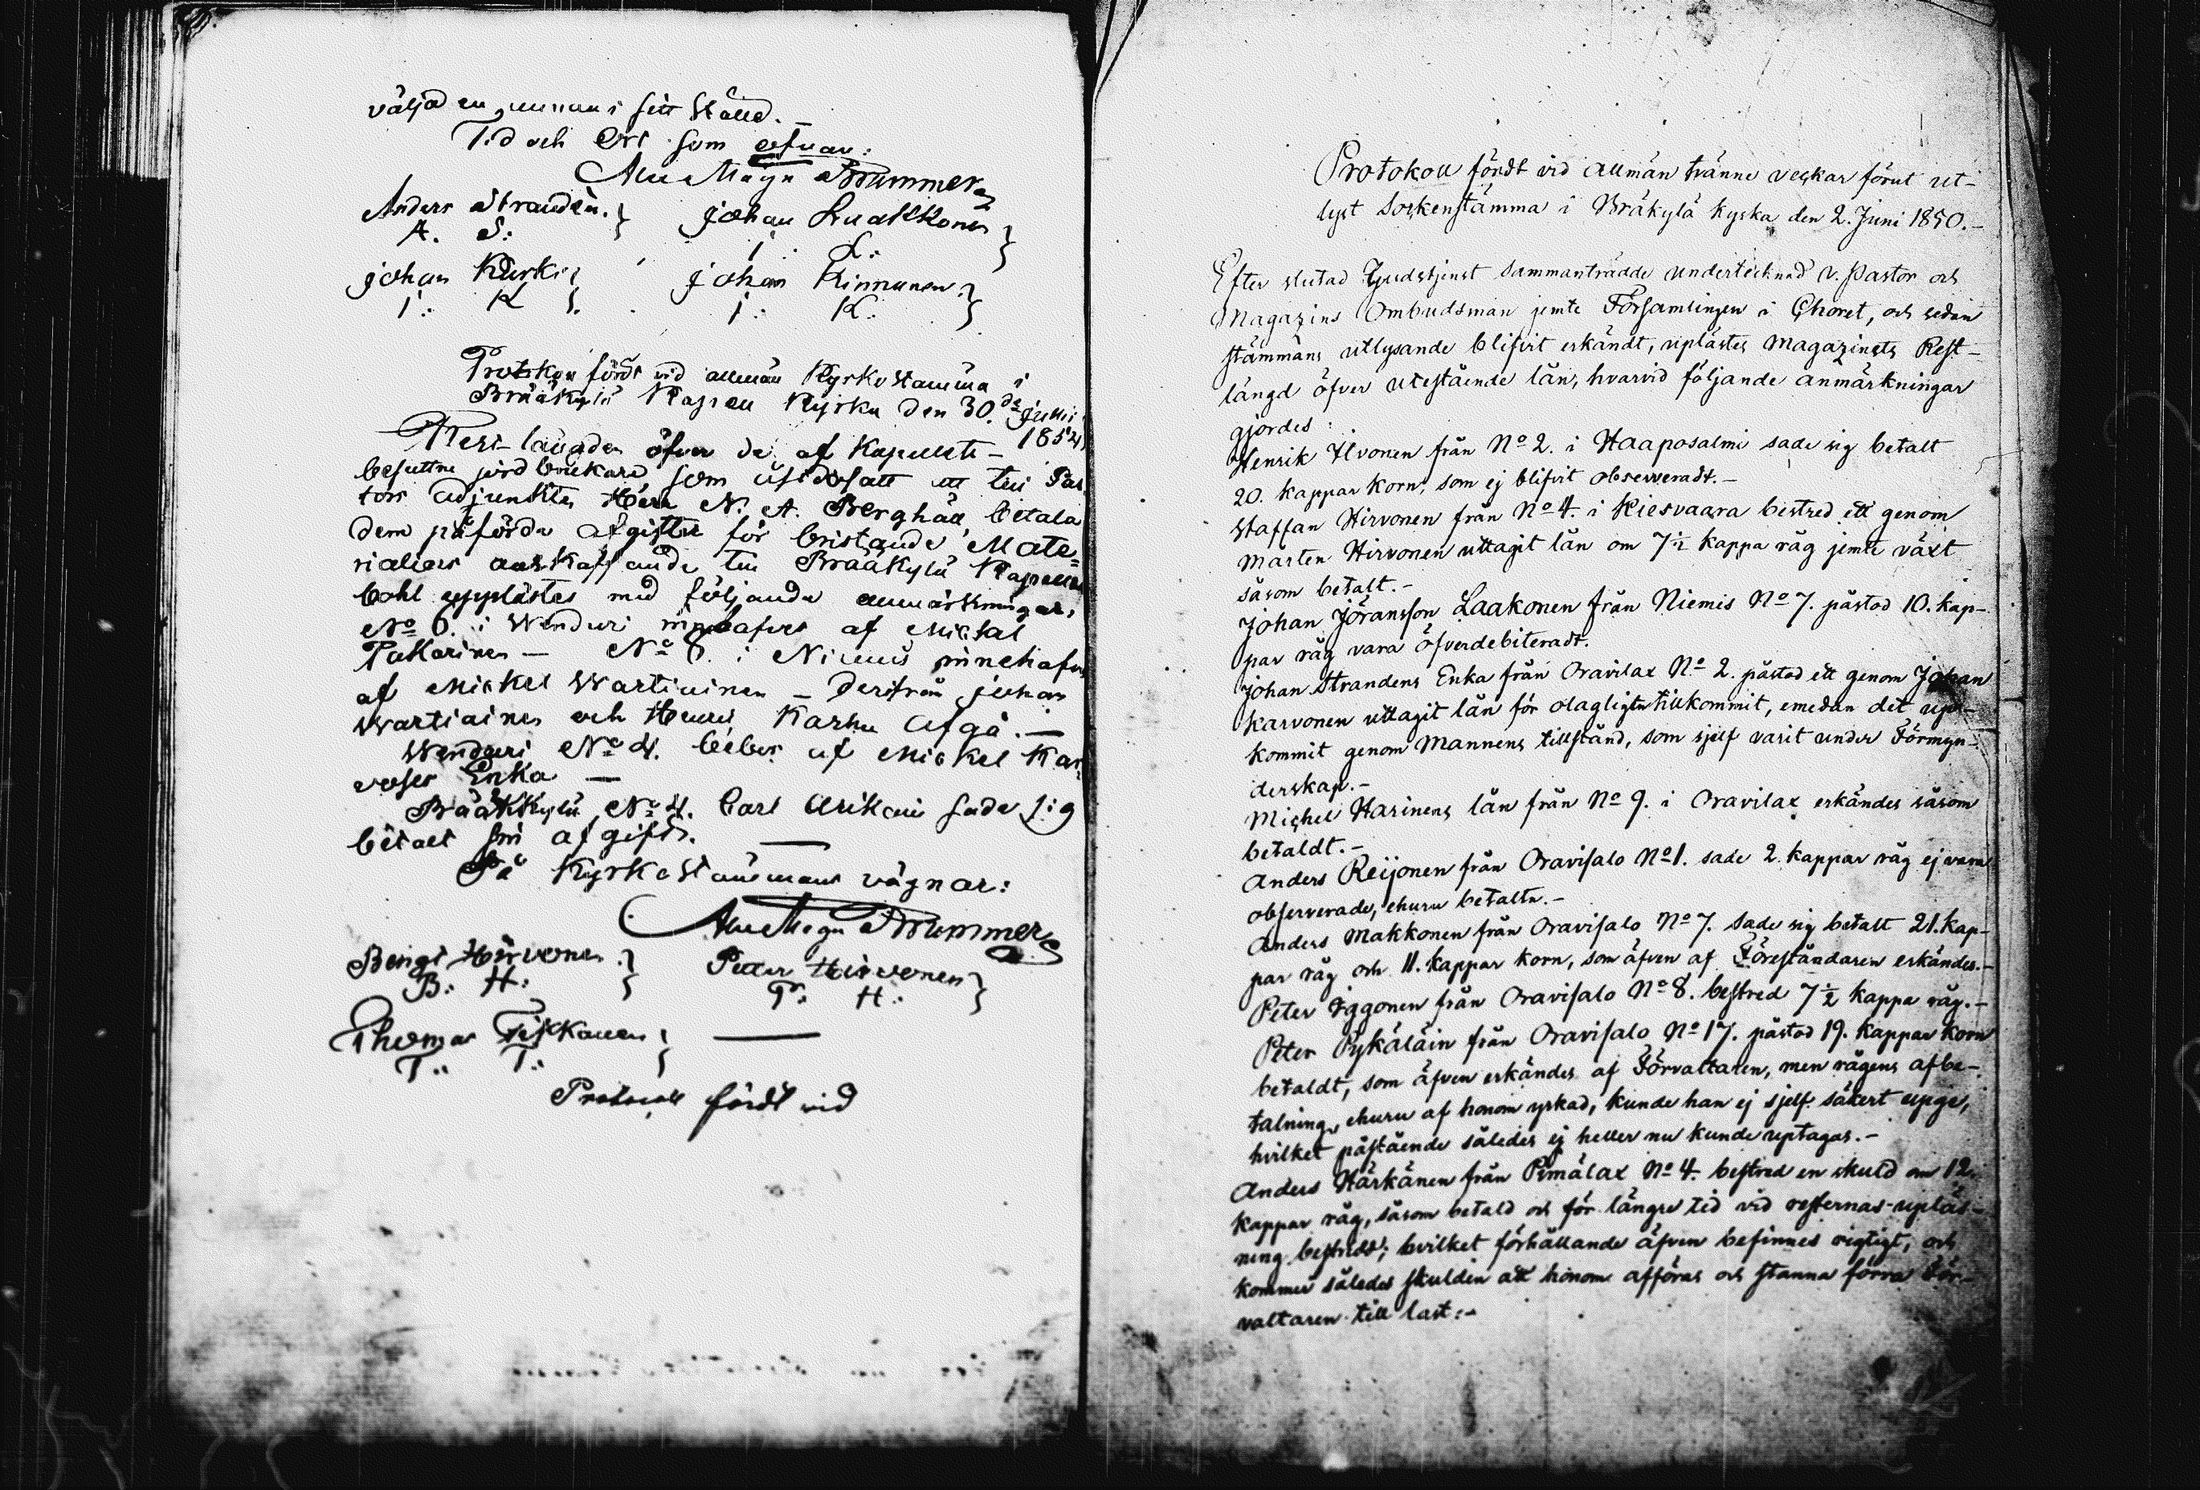 väljad en annan i sitt ställe. –
Tid och Ort som ofvan:
Alex Magn Brummer
Anders Stranden. } Johan Luukkonen }
A. S: I: L:
Johan Kurki } Johan Kinnunen }
I: K I: K:
Protokoll fördt vid allmän Kyrkostämma i
Brääkylä Kapell Kyrka den 30. de Junii
Rest-längden öfver de af Kapellets –
besuttne jordbrukare som
tors Adjunkten Herr N. A. Berghäll, betala
dem påförda afgifter för bristande Mate=
rialiers anskaffande till Brääkylä Kapellans
bohl upplästes med följande anmärkningar,
No 6. i Wänduri innehafves af Michel
Pakarinen – No 8. i Niemis innehafves
af Mickel Wartiainen – Derifrån Johan
Wartiainen och Henric Karhu Afgå. –
Wänduri No 4. bebos af Mickel Kar=
voses Enka –
Brääkkylä No 4. Carl Arikain sade sig
betalt sin afgift. –
På Kyrkostämmans vägnar:
Alex Magn Brummer
Bengt Hirvonen } Petter Hirvonen }
B: H: P: H:
Thomas Tikkanen } –
T: T:
Protocoll fördt vid
Protokoll fördt vid allmän tvänne veckar förut ut-
lyst Sockenstämma i Bräkylä kyrka den 2. Juni 1850. –
Efter slutad Gudstjenst sammanträdde undertecknad v. Pastor och
Magazins Ombudsman jemte Församlingen i Choret, och sedan
stämmans utlysande blifvit erkändt, uplästes Magazinets Rest-
längd öfver utestående lån, hvarvid följande anmärkningar
gjordes:
Henrik Ilvonen från No 2. i Haaposalmi sade sig betalt
20. kappar korn, som ej blifvit observeradt. –
Staffan Hirvonen från No 4. i Kiesvaara bestred ett genom
Mårten Hirvonen uttagit lån om 7 1/2 kappa råg jemte växt
såsom betalt. –
Johan Jöransson Laakonen från Niemis No 7. påstod 10. kap-
par råg vara öfverdebiteradt.
Johan Strandens Enka från Oravilax No 2. påstod ett genom Johan
Karvonen uttagit lån för olagligen tillkommit, emedan det up-
kommit genom Mannens tillstånd, som sjelf varit under Förmyn-
derskap. –
Michel Harinens lån från No 9. i Oravilax erkändes såsom
betaldt. –
Anders Reijonen från Oravisalo No 1. sade 2. kappar råg ej vara
observerade, ehuru betalta. –
Anders Makkonen från Oravisalo No 7. sade sig betalt 21. kap-
par råg och 11. kappar korn, som äfven af Föreståndaren erkändes. –
Peter Iggonen från Oravisalo No 8. bestred 7 1/2 kappa råg. –
Peter Pykäläin från Oravisalo No 17. påstod 19. kappar korn
betaldt, som äfven erkändes af Förvaltaren, men rågens afbe-
talning, ehuru af honom yrkad, kunde han ej sjelf säkert upge,
hvilket påstående således ej heller nu kunde uptagas. –
Anders Härkänen från Pimälax No 4. bestred en skuld om 12.
kappar råg, såsom betald och för längre tid vid resternas upläs-
ning bestridd; hvilket förhållande äfven befinnes rigtigt, och
kommer således skulden att honom afföras och stanna förra För-
valtaren till last: –